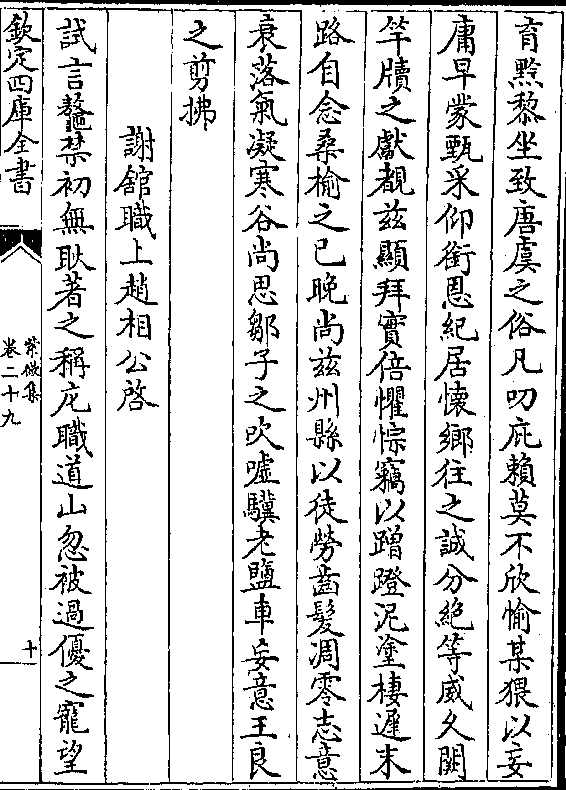 育黙黎坐致唐虞之俗凡叨庇賴莫不欣愉某猥以妄
庸早蒙甄采仰銜恩紀居懷鄉往之誠分絶等威久闕
竿牘之獻覩兹顯拜實倍懼悰竊以蹭蹬泥塗棲遲末
路自念桑榆之已晚尚兹州縣以徒勞齒髮凋零志意
衰落氣凝寒谷尚思鄒子之吹噓驥老鹽車妄意王良
之剪拂
謝舘職上趙相公啓
試言鼇禁初無耿著之稱庀職道山忽被過優之寵望
欽定四庫全書
紫微集
卷二十九
十